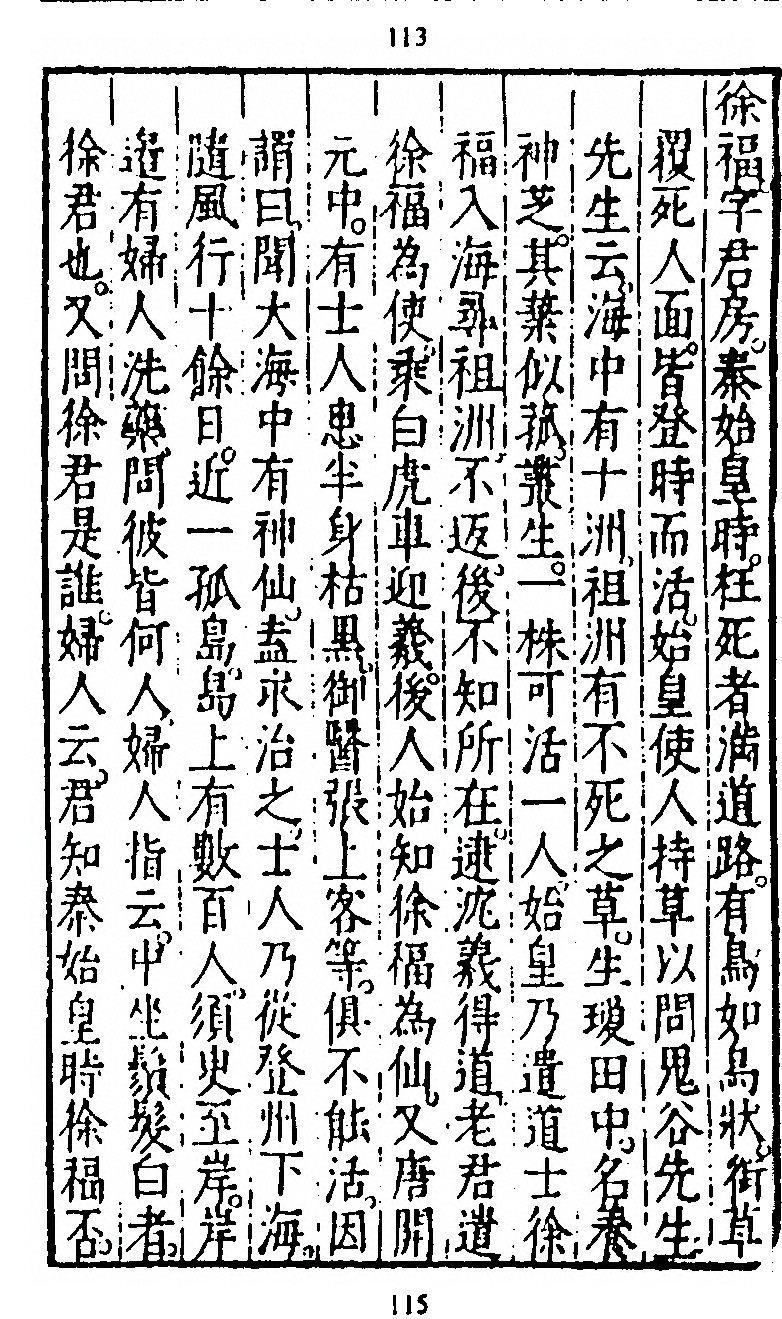 113
徐福字君房。秦始皇時。枉死者滿道路。有鳥如烏狀。銜草
覆死人面。皆登時而活。始皇使人持草以問鬼谷先生
先生云。海中有十洲。祖洲有不死之草。生瓊田中。名養
神芝。其葉似菰。叢生。一株可活一人。始皇乃遣道士徐
福入海尋祖洲。不返。後不知所在。逮沈羲得道。老君遣
徐福為使。乘白虎車迎羲。後人始知徐福為仙。又唐開
元中。有士人患半身枯黑。御醫張上客等。俱不能活。因
謂曰。聞大海中有神仙。盍求治之。士人乃從登州下海。
隨風行十餘日。近一孤島。島上有數百人。須臾至岸。岸
邊有婦人洗藥。問彼皆何人。婦人指云。中坐鬚髮白者。
徐君也。又問徐君是誰。婦人云。君知秦始皇時徐福否。
115